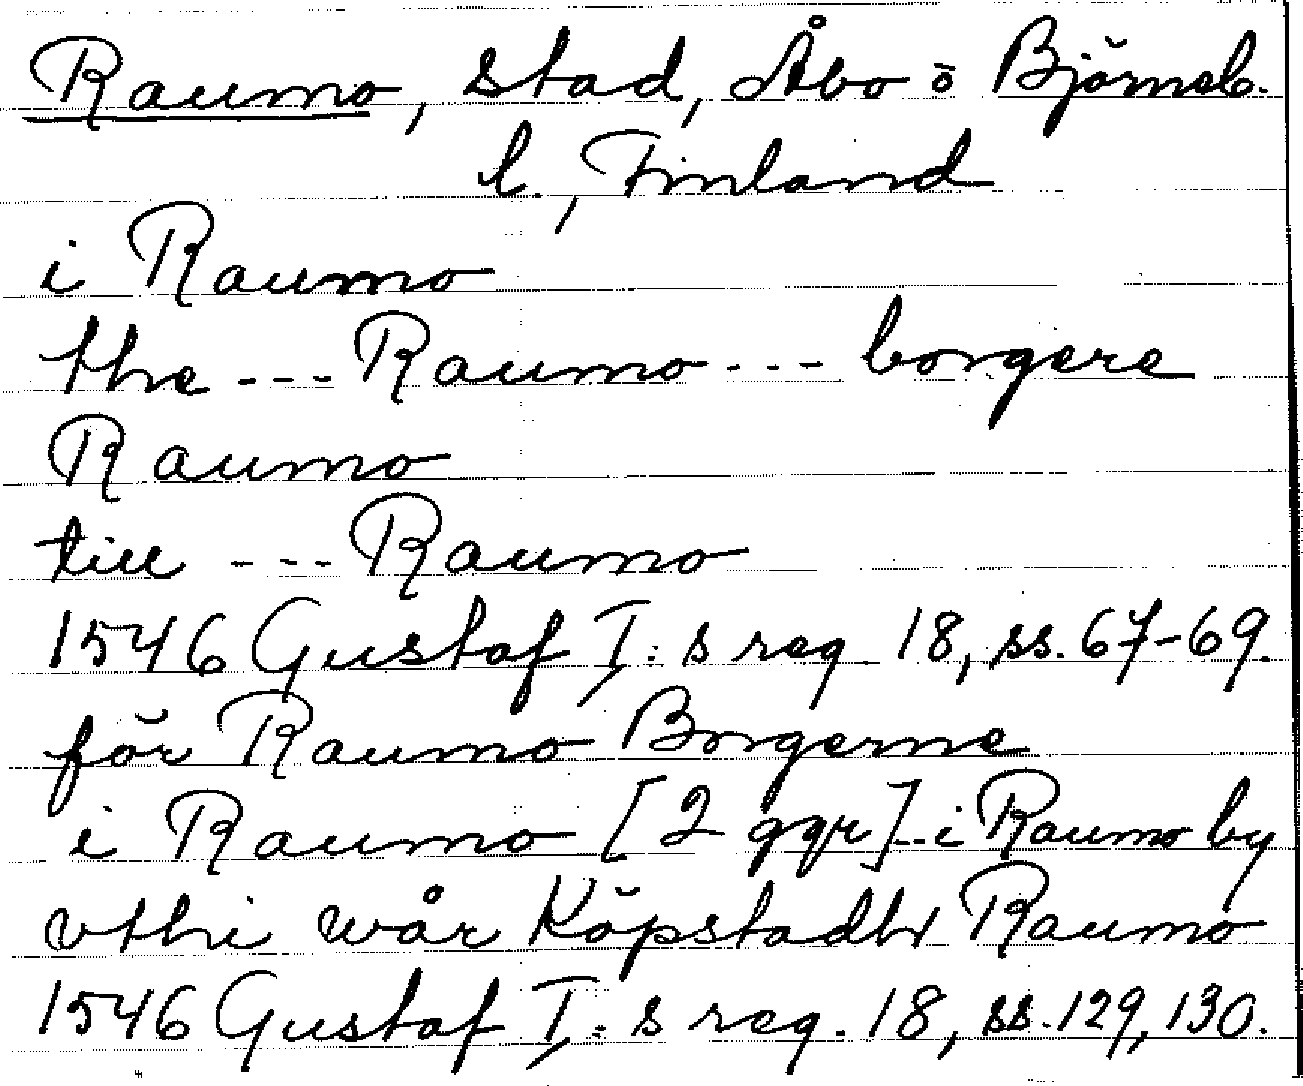 Raumo, stad, Åbo o Björneb.
l., Finland
i Raumo
the --- Raumo --- borgere
Raumo
till --- Raumo
1546 Gustaf I:s reg 18, ss. 67-69.
för Raumo Borgerne
i Raumo [2 ggr] - i Raumo by
vthi wår Köpstadh Raumo
1546 Gustaf I:s reg. 18, ss. 129, 130.